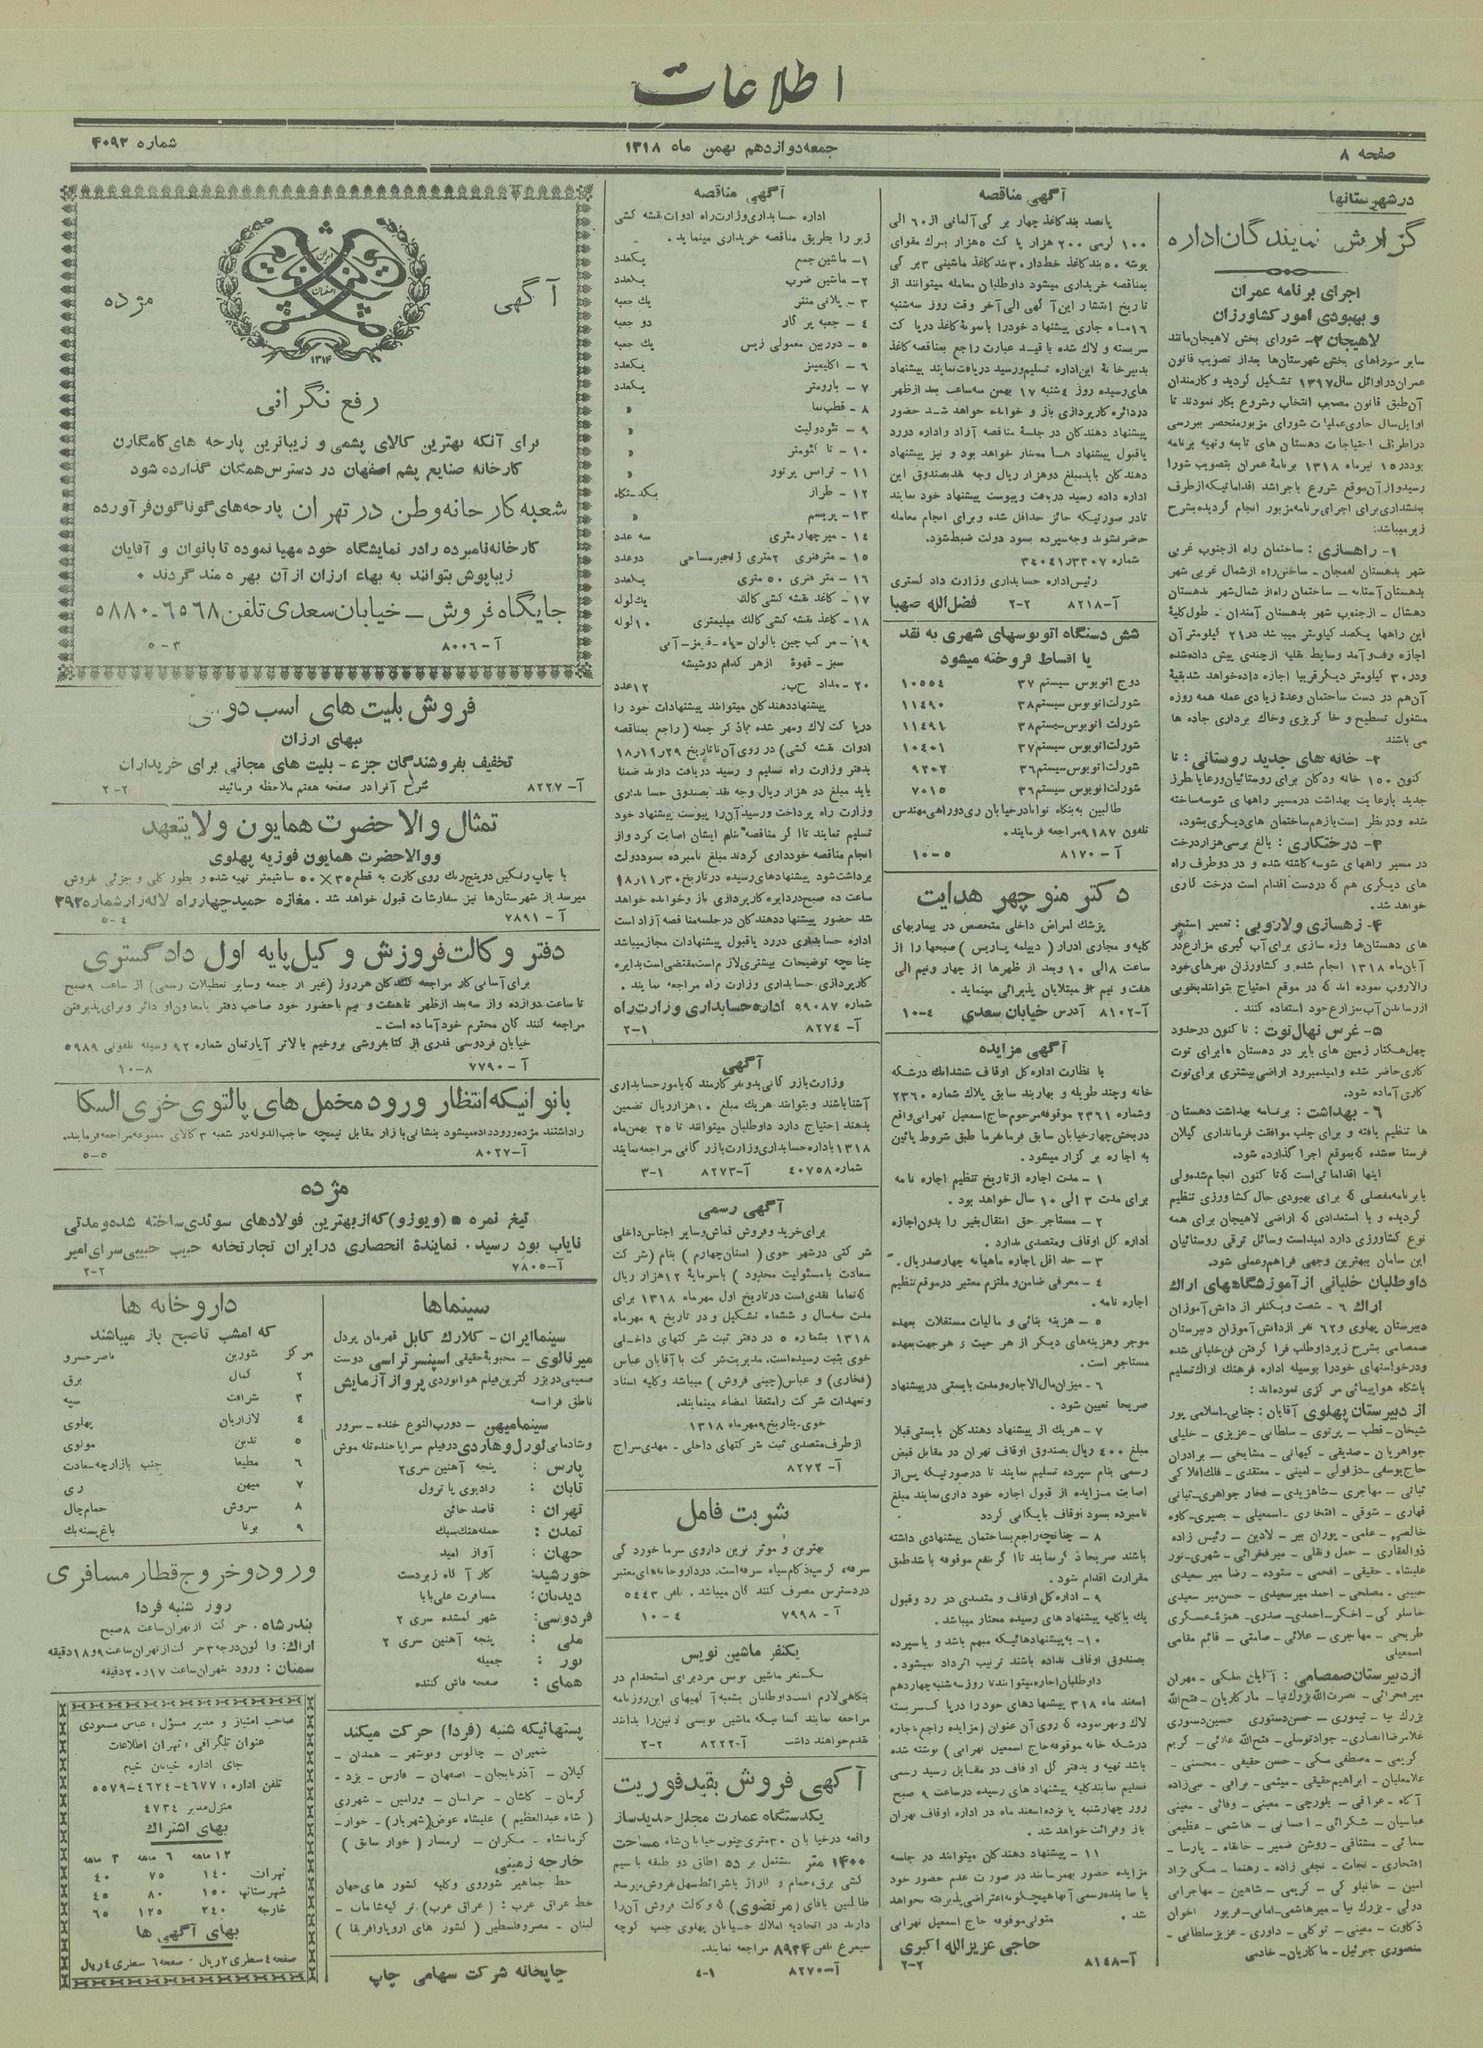 اطلاعات
صفحه ۸
جمعه دوازدهم بهمن ماه ۱۳۱۸
شماره ۴۰۹۲
در شهرستانها
گزارش نمایندگان اداره
اجرای برنامه عمران
و بهبودی امور کشاورزان
لاهیجان ۲- شورای بخش لاهیجان مانند
سایر شوراهای بخش شهرستان‌ها بعد از تصویب قانون
عمران در اوائل سال ۱۳۱۷ تشکیل گردید و کارمندان
آن طبق قانون مصوب انتخاب و شروع بکار نمودند تا
اوایل سال جاری عملیات شورای مزبور منحصر ببررسی
در اطراف احتیاجات دهستان های تابعه و تهیه برنامه
بود در ۱۵ تیرماه ۱۳۱۸ برنامه عمران بتصویب شورا
رسید و از آن موقع شروع باجرا شد اقداماتیکه از طرف
بخشداری برای اجرای برنامه مزبور انجام گردیده بشرح
زیر میباشد:
۱- راهسازی : ساختمان راه از جنوب غربی
شهر بدهستان لفمجان - ساختن راه از شمال غربی شهر
این راهها یکصد کیلومتر میباشد در ۲۱ کیلومتر آن
اجازه رفت و آمد وسایط نقلیه از چندی پیش داده شده
و در ۳۰ کیلومتر دیگر قریبا اجازه داده خواهد شد بقیهٔ
آن هم در دست ساختمان وعدهٔ زیادی عمله همه روزه
مشغول تسطیح و خاکریزی و خاک برداری جاده ها
می باشند
۲- خانه های جدید روستائی : تا
کنون ۱۵۰ خانه و دکان برای روستائیان و رعایا بطرز
جدید با رعایت بهداشت در مسیر راههای شوسه ساخته
شده و در نظر است باز هم ساختمان های دیگری بشود.
۳- درختکاری : بالغ برسی هزار درخت
در مسیر راههای شوسه کاشته شده و در دو طرف راه
های دیگری هم که در دست اقدام است درخت کاری
خواهد شد.
۴- زهسازی ولاروبی : تعمیر استخر
های دهستان‌ها وزه سازی برای آب گیری مزارع در
آبان ماه ۱۳۱۸ انجام شده و کشاورزان نهرهای خود
را لاروب نموده اند که در موقع احتیاج بتوانند بخوبی
از رساندن آب بمزارع خود استفاده کنند.
۵- غرس نهال توت : تا کنون در حدود
چهل هکتار زمین های بایر در دهستان ها برای توت
کاری حاضر شده و امید میرود اراضی بیشتری برای توت
کاری آماده شود.
۶- بهداشت : برنامه بهداشت دهستان
ها تنظیم یافته و برای جلب موافقت فرمانداری گیلان
فرستاده شده که بموقع اجرا گذارده شود.
اینها اقداماتی است که تا کنون انجام شده ولی
با برنامه مفصلی که برای بهبودی حال کشاورزی تنظیم
گردیده و با استعدادی که اراضی لاهیجان برای همه
نوع کشاورزی دارد امید است وسائل ترقی روستائیان
این سامان ببهترین وجهی فراهم و عملی شود.
داوطلبان خلبانی از آموزشگاههای اراک
اراک ۶ - شصت و یکنفر از دانش آموزان
دبیرستان پهلوی و ۶۲ نفر از دانش آموزان دبیرستان
صمصامی بشرح زیر داوطلب فرا گرفتن فن خلبانی شده
و درخواستهای خود را بوسیله اداره فرهنگ اراک تسلیم
باشگاه هواپیمائی مرکزی نموده اند :
از دبیرستان پهلوی آقایان : جنابی - اسلامی پور
از دبیرستان صمصامی : آقایان ملکی - مهران
آگهی مناقصه
پانصد بند کاغذ چهار برگی آلمانی از ۶۰ الی
۱۰۰ گرمی ۲۰۰ هزار پاکت ۵ هزار برگ مقوای
پوشه ۵۰ بند کاغذ خط دار ۳۰ بند کاغذ ماشینی ۳ برگی
بمناقصه خریداری میشود داوطلبان معامله میتوانند از
تاریخ انتشار این آگهی الی آخر وقت روز سه شنبه
۱۶ ماه جاری پیشنهاد خود را با نمونهٔ کاغذ در پاکت
سربسته و لاک شده با قید عبارت راجع بمناقصه کاغذ
بدبیرخانهٔ این اداره تسلیم و رسید دریافت نمایند پیشنهاد
های رسیده روز ۴ شنبه ۱۷ بهمن سه ساعت بعد از ظهر
در دائره کارپردازی باز و خوانده خواهد شد حضور
پیشنهاد دهندگان در جلسهٔ مناقصه آزاد و اداره در رد
یا قبول پیشنهاد ها مختار خواهد بود و نیز پیشنهاد
دهندگان باید مبلغ دوهزار ریال وجه نقد بصندوق این
اداره داده رسید دریافت و پیوست پیشنهاد خود نمایند
تا در صورتیکه حائز حداقل شده و برای انجام معامله
حاضر نشوند وجه سپرده بسود دولت ضبط شود.
شماره ۳۴۰۴۱/۳۳۰۷
رئیس اداره حسابداری وزارت دادگستری
آ-۸۲۱۸ ۲-۲ فضل الله صهبا
شش دستگاه اتوبوسهای شهری به نقد
یا اقساط فروخته میشود
دوج اتوبوس سیستم ۳۷ ۱۰۵۵۴
شورلت اتوبوس سیستم ۳۸ ۱۱۴۹۰
شورلت اتوبوس سیستم ۳۸ ۱۱۴۹۱
شورلت اتوبوس سیستم ۳۷ ۱۰۴۰۱
شورلت اتوبوس سیستم ۳۶ ۹۲۰۲
شورلت اتوبوس سیستم ۳۶ ۷۰۱۵
طالبین به بنگاه نوآباد در خیابان ری دوراهی مهندس
تلفون ۹۱۸۷ مراجعه فرمایند.
آ-۸۱۷۰ ۵-۱۰
دکتر منوچهر هدایت
پزشک امراض داخلی متخصص در بیماریهای
کلیه و مجاری ادرار (دیپلمه پاریس) صبحها را از
ساعت ۸ الی ۱۰ و بعد از ظهرها از چهار و نیم الی
هفت و نیم از مبتلایان پذیرائی مینماید.
آ-۸۱۰۲ آدرس خیابان سعدی ۴-۱۰
آگهی مزایده
با نظارت اداره کل اوقاف ششدانگ درشکه
خانه و چند طویله و بهاربند سابق پلاک شماره ۲۳۶۰
و شماره ۲۳۶۱ موقوفه مرحوم حاج اسمعیل تهرانی واقع
در بخش چهار خیابان سابق فرمانفرما طبق شروط پائین
به اجاره برگزار میشود.
۱ - مدت اجاره از تاریخ تنظیم اجاره نامه
برای مدت ۳ الی ۱۰ سال خواهد بود.
۲ - مستاجر حق انتقال بغیر را بدون اجازه
اداره کل اوقاف و متصدی ندارد.
۳ - حداقل اجاره ماهیانه چهارصد ریال.
۴ - معرفی ضامن و ملتزم معتبر در موقع تنظیم
اجاره نامه.
۵ - هزینه بنائی و مالیات مستغلات بعهده
موجر و هزینه‌های دیگر از هر حیث و هرجهت بعهده
مستاجر است.
۶ - میزان مال الاجاره و مدت بایستی در پیشنهاد
صریحا تعیین شود.
۷ - هریک از پیشنهاد دهندگان بایستی قبلا
مبلغ ۴۰۰ ریال بصندوق اوقاف تهران در مقابل قبض
رسمی بنام سپرده تسلیم نمایند تا در صورتیکه پس از
اصابت مزایده از قبول اجاره خود داری نمایند مبلغ
نامبرده بسود اوقاف بایگانی گردد
۸ - چنانچه راجع بساختمان پیشنهادی داشته
باشند صریحا ذکر نمایند تا اگر بنفع موقوفه باشد طبق
مقررات اقدام شود.
۹ - اداره کل اوقاف و متصدی در رد و قبول
یک یا کلیه پیشنهاد های رسیده مختار میباشد.
۱۰ - به پیشنهادهائیکه مبهم باشد و یا سپرده
بصندوق اوقاف نداده باشند ترتیب اثر داده نمیشود.
داوطلبان اجاره میتوانند تا روز سه شنبه چهاردهم
اسفند ماه ۳۱۸ پیشنهادهای خود را در پاکت سربسته
لاک و مهر نموده که روی آن عنوان (مزایده راجع باجاره
درشکه خانه موقوفه حاج اسمعیل تهرانی) نوشته شده
باشد تهیه و بدفتر کل اوقاف در مقابل رسید رسمی
تسلیم نمایند کلیه پیشنهاد های رسیده در ساعت ۹ صبح
روز چهارشنبه پانزده اسفند ماه در اداره اوقاف تهران
باز و قرائت خواهد شد.
۱۱ - پیشنهاد دهندگان میتوانند در جلسه
مزایده حضور بهم رسانند در صورت عدم حضور خود
یا نماینده رسمی آنها هیچگونه اعتراضی پذیرفته نخواهد
شد.
متولی موقوفه حاج اسمعیل تهرانی
حاجی عزیزالله اکبری
آ-۸۱۴۸ ۲-۲
آگهی مناقصه
اداره حسابداری وزارت راه ادوات نقشه کشی
زیر را بطریق مناقصه خریداری مینماید.
۱- ماشین جمع یکعدد
۲- ماشین ضرب یکعدد
۳ - پلانی متتر یک جعبه
۴ - جعبه پرگار دو جعبه
۵ - دوربین معمولی زیس یک جعبه
۶ - اکلیمتر یکعدد
۷ - بارومتر یکعدد
۸ - قطب نما »
۹ - تئودولیت »
۱۰ - تاکئومتر »
۱۱ - تراس پرتور »
۱۲ - طراز یکدستگاه
۱۳ - پریسم »
۱۴ - میر چهار متری سه عدد
۱۵ - متر فنری ۲ متری زنجیر مساحی دو عدد
۱۶ - متر فنری ۵۰ متری یکعدد
۱۷ - کاغذ نقشه کشی کالک یک لوله
۱۸- کاغذ نقشه کشی کالک میلیمتری ۱۰ لوله
۱۹- مرکب چین بالوان سیاه - قرمز - آبی
سبز - قهوهٔ از هر کدام دو شیشه
۲۰- مداد ۱۲ عدد
پیشنهاد دهندگان میتوانند پیشنهادات خود را
در پاکت لاک و مهر شده بذکر جمله (راجع بمناقصه
ادوات نقشه کشی) در روی آن تا تاریخ ۱۸/۱۱/۲۹
بدفتر وزارت راه تسلیم و رسید دریافت دارند ضمنا
باید مبلغ دو هزار ریال وجه نقد بصندوق حسابداری
وزارت راه پرداخت و رسید آن را پیوست پیشنهاد خود
تسلیم نمایند تا اگر مناقصه بنام ایشان اصابت کرد و از
انجام مناقصه خودداری کردند مبلغ نامبرده بسود دولت
برداشت شود پیشنهادهای رسیده در تاریخ ۱۸/۱۱/۳۰
ساعت ده صبح در دایره کارپردازی باز و خوانده خواهد
شد حضور پیشنهاد دهندگان در جلسه مناقصه آزاد است
اداره حسابداری در رد یا قبول پیشنهادات مجاز میباشد
چنانچه توضیحات بیشتری لازم است مقتضی است بدایره
کارپردازی حسابداری وزارت راه مراجعه نمایند.
شماره ۵۹۰۸۷ اداره حسابداری وزارت راه
آ-۸۲۷۴ ۱-۲
آگهی
وزارت بازرگانی بدو نفر کارمند که بامور حسابداری
آشنا باشند و بتوانند هریک مبلغ ۱۰ هزار ریال تضمین
بدهند احتیاج دارد داوطلبان میتوانند تا ۲۵ بهمن ماه
۱۳۱۸ باداره حسابداری وزارت بازرگانی مراجعه نمایند
شماره ۴۰۷۵۸ آ-۸۲۷۳ ۱-۳
آگهی رسمی
برای خرید و فروش قماش و سایر اجناس داخلی
شرکتی در شهر خوی (استان چهارم) بنام (شرکت
سعادت با مسئولیت محدود) با سرمایهٔ ۱۲ هزار ریال
که تماما نقدی است در تاریخ اول مهرماه ۱۳۱۸ برای
مدت سه سال و ششماه تشکیل و در تاریخ ۹ مهرماه
۱۳۱۸ بشماره ۵ در دفتر ثبت شرکتهای داخلی
خوی بثبت رسیده است. مدیریت شرکت با آقایان عباس
(فخاری) و عباس (چینی فروش) میباشد و کلیه اسناد
و تعهدات شرکت را متفقا امضاء مینمایند.
خوی- بتاریخ ۹ مهرماه ۱۳۱۸
از طرف متصدی ثبت شرکتهای داخلی - مهدی سراج
آ-۸۲۷۲
شربت فامل
بهترین و موثر ترین داروی سرما خوردگی
سرفه، گریپ، زکام، سیاه سرفه است. در داروخانه‌های معتبر
در دسترس مصرف کنندگان میباشد. تلفن ۵۴۴۳
آ-۷۹۹۸ ۴-۱۰
یکنفر ماشین نویس
یکنفر ماشین نویس مرد برای استخدام در
بنگاهی لازم است داوطلبان بشعبه آگهیهای این روزنامه
مراجعه نمایند کسانیکه ماشین نویسی لاتین را بدانند
تقدم خواهند داشت آ-۸۲۲۲ ۲-۲
آگهی فروش بقید فوریت
یکدستگاه عمارت مجلل جدیدساز
واقعه در خیابان ۳۰ متری جنوب خیابان شاه مساحت
۱۴۰۰ متر مشتمل بر ده اطاق دو طبقه با سیم
کشی برق، حمام و گاراژ با شرائط سهل فروش میرسد
طالبین بآقای (مرتضوی) که وکالت فروش آن را
دارند در اتحادیه املاک خیابان پهلوی جنب کوچه
سیمرغ تلفن ۸۹۲۴ مراجعه نمایند.
آ-۸۲۷۰ ۱-۴
آگهی
مژده
۱۳۱۴
رفع نگرانی
برای آنکه بهترین کالای پشمی و زیباترین پارچه های کامگارن
کارخانه صنایع پشم اصفهان در دسترس همگان گذارده شود
شعبه کارخانه وطن در تهران پارچه‌های گوناگون فرآورده
کارخانه نامبرده را در نمایشگاه خود مهیا نموده تا بانوان و آقایان
زیباپوش بتوانند به بهاء ارزان از آن بهره مند گردند
جایگاه فروش - خیابان سعدی تلفن ۶۵۶۸-۵۸۸۰
آ-۸۰۰۶ ۳-۵
فروش بلیت های اسب دوانی
ببهای ارزان
تخفیف بفروشندگان جزء - بلیت های مجانی برای خریداران
آ-۸۲۲۷ شرح آنرا در صفحه هفتم ملاحظه فرمائید ۲-۲
تمثال والاحضرت همایون ولایتعهد
و والاحضرت همایون فوزیه پهلوی
با چاپ رنگین در پنج رنگ روی کارت به قطع ۳۵×۵۰ سانتیمتر تهیه شده و بطور کلی و جزئی بفروش
میرسد از شهرستان‌ها نیز سفارشات قبول خواهد شد. مغازه حمید چهارراه لاله‌زار شماره ۳۹۲
آ-۷۸۹۱ ۴-۵
دفتر وکالت فروزش وکیل پایه اول دادگستری
برای آسانی کار مراجعه کنندگان هر روز (غیر از جمعه و سایر تعطیلات رسمی) از ساعت ۹ صبح
تا ساعت دوازده و از سه بعد از ظهر تا هشت و نیم با حضور خود صاحب دفتر با معاون او دائر و برای پذیرفتن
مراجعه کنندگان محترم خود آماده است -
خیابان فردوسی قدری از کتابفروشی بروخیم بالاتر آپارتمان شماره ۹۲ وسیله تلفونی ۵۹۸۹
آ-۷۷۹۰ ۸-۱۰
بانوانیکه انتظار ورود مخمل های پالتوی خزی السکا
را داشتند مژده ورود داده میشود بنشانی بازار مقابل تیمچه حاجب الدوله در شعبه ۳ کالای ممنوعه مراجعه فرمایند.
آ-۸۰۲۷ ۵-۵
مژده
تیغ نمره ۵ (ویوزو) که از بهترین فولادهای سوئدی ساخته شده و مدتی
نایاب بود رسید. نمایندهٔ انحصاری در ایران تجارتخانه حبیب حبیبی سرای امیر
آ-۷۸۰۵ ۲-۲
سینماها
سینما ایران - کلارک گابل قهرمان پردل
میرنالوی - محبوبهٔ حقیقی اسپنسر تراسی دوست
صمیمی در بزرگترین فیلم هوانوردی پرواز آزمایش
ناطق فرانسه
سینما میهن - دو رب النوع خنده - سرور
و شادمانی لورل و هاردی در فیلم سراپا خنده تله موش
پارس : پنجه آهنین سری ۲
تابان : رادیوی پاترول
تهران : قاصد خائن
تمدن : حمله هنگ سبک
جهان : آواز امید
خورشید: کارآگاه زبردست
دیدبان : مسافرت علی بابا
فردوسی: شهر گمشده سری ۲
ملی : پنجه آهنین سری ۲
نور : جمیله
همای : صفحه فاش کننده
پستهائیکه شنبه (فردا) حرکت میکند
شمیران - چالوس و نوشهر - همدان -
گیلان - آذربایجان - اصفهان - فارس - یزد -
کرمان - کاشان - خراسان - ورامین - شهرری
(شاه عبدالعظیم) علیشاه عوض (شهریار) - خوار -
کرمانشاه - مکران - گرمسار (خوار سابق)
خارجه زمینی
خط جماهیر شوروی و کلیه کشور های جهان
خط عراق عرب : (عراق عرب) ترکیه شامات -
لبنان - مصر و فلسطین (کشور های اروپا و افریقا)
چاپخانه شرکت سهامی چاپ
داروخانه ها
که امشب تا صبح باز میباشند
مرکز شورین ناصرخسرو
۲ کمال برق
۳ شرافت سپه
۴ لازاریان پهلوی
۵ تدین مولوی
۶ مطیعا جنب بازارچه سعادت
۷ میهن ری
۸ سروش حمام چال
۹ برنا باغ پسته بک
ورود و خروج قطار مسافری
روز شنبه فردا
بندرشاه. حرکت از تهران ساعت ۸ صبح
اراک: واگون درجه ۳ حرکت از تهران ساعت ۹ و ۱۸ دقیقه
سمنان : ورود بتهران ساعت ۱۷ و ۲۰ دقیقه
صاحب امتیاز و مدیر مسؤل : عباس مسعودی
عنوان تلگرافی : تهران اطلاعات
جای اداره خیابان خیام
تلفن اداره : ۴۶۷۷-۴۶۲۴-۵۵۷۹
منزل مدیر ۴۷۳۴
بهای اشتراک
۱۲ ماهه ۶ ماهه ۳ ماهه
تهران ۱۴۰ ۷۵ ۴۰
شهرستانها ۱۵۰ ۸۰ ۴۵
خارجه ۲۴۰ ۱۲۵ ۶۵
بهای آگهی ها
صفحه ۴ سطری ۲ ریال - صفحه ۶ سطری ۴ ریال